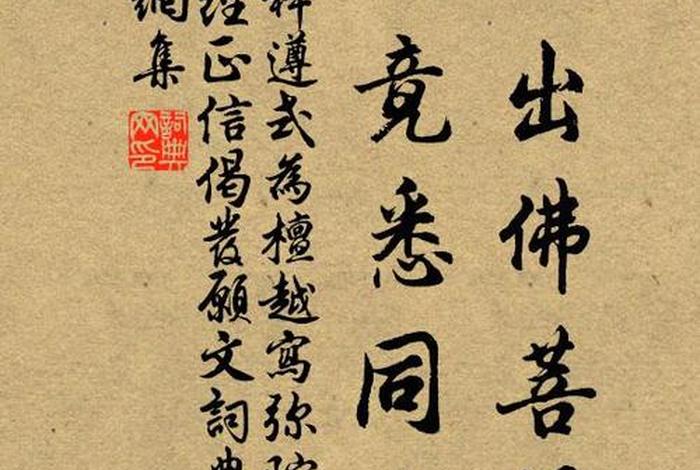 出佛菩
竟悉同
釋遵式為檀越寫弥陀
經正信偈發願文詞典
網集
詞典網印